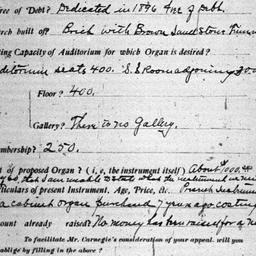 ree of Debt? Dedicated in 1896 free of debt.
urch built of? Brick with Brown Sand Stone Trimm
ting Capacity of Auditorium for which Organ is desired?
ditorium seats 400. S.S. Room adjoining 300
Floor? 400.
Gallery? There is no Gallery.
mbership? 250.
t of proposed Organ? (i.e, the instrument itself) About
that I am unable to state
ticulars of present Instrument, Age, Price, etc. Present Instrum
a cabinet organ purchased 7 years ago costing
ount already raised? No money has been raised for a n
To facilitate Mr. Carnegie's consideration of your appeal. will you
oblige by filling in the above?